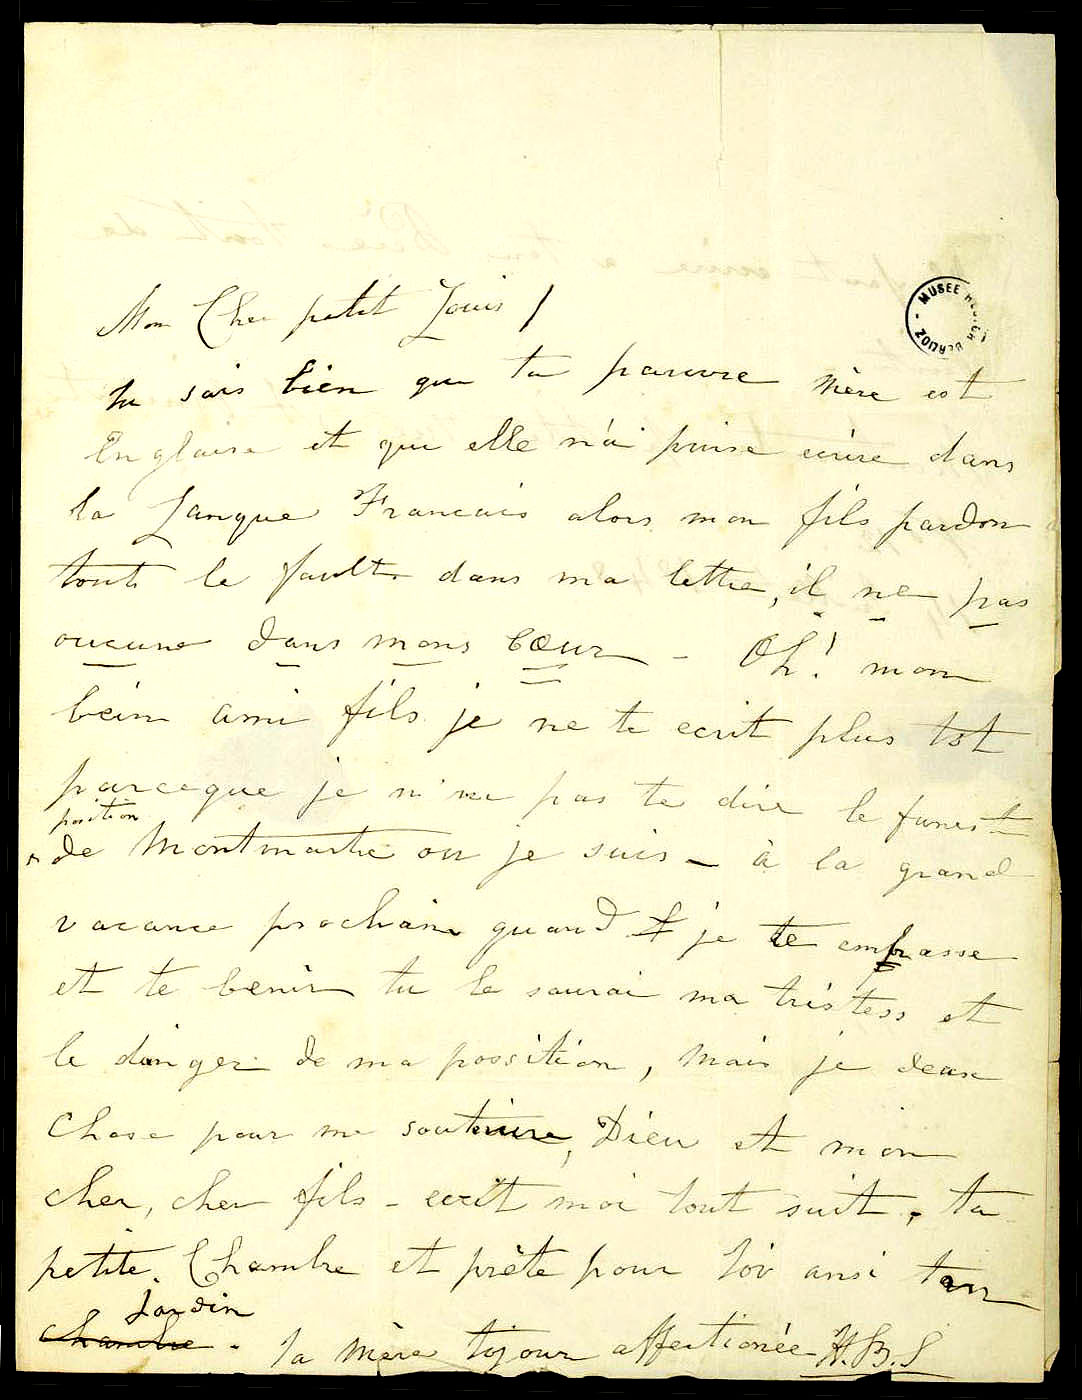 Mon Cher petit Louis /
MUSEE HECTOR BERLIOZ
tu sais bien que ta pauvre mère est
Englaise et que elle n'ai puise ecrire dans
la Langue Francais alors mon fils pardon
touts le faults dans ma lettre, il ne pas
oucune dans mons Cœur - Oh! mon
bein ami fils je ne te ecrit plus tot
parceque je n'ne pas te dire le funest
position
de Montmartre ou je suis - à la grand
vacance prochain quand je te embrasse
et te benir tu le saurai ma tristess et
le dinger de ma possition, mais je deux
Chose pour me soutenire, Dieu et mon
cher, cher fils - ecrit moi tout suit, ta
petite Chambre et prête pour toi ansi ton
Jardin
Chambre - ta Mère tojour affectionée H.B.S